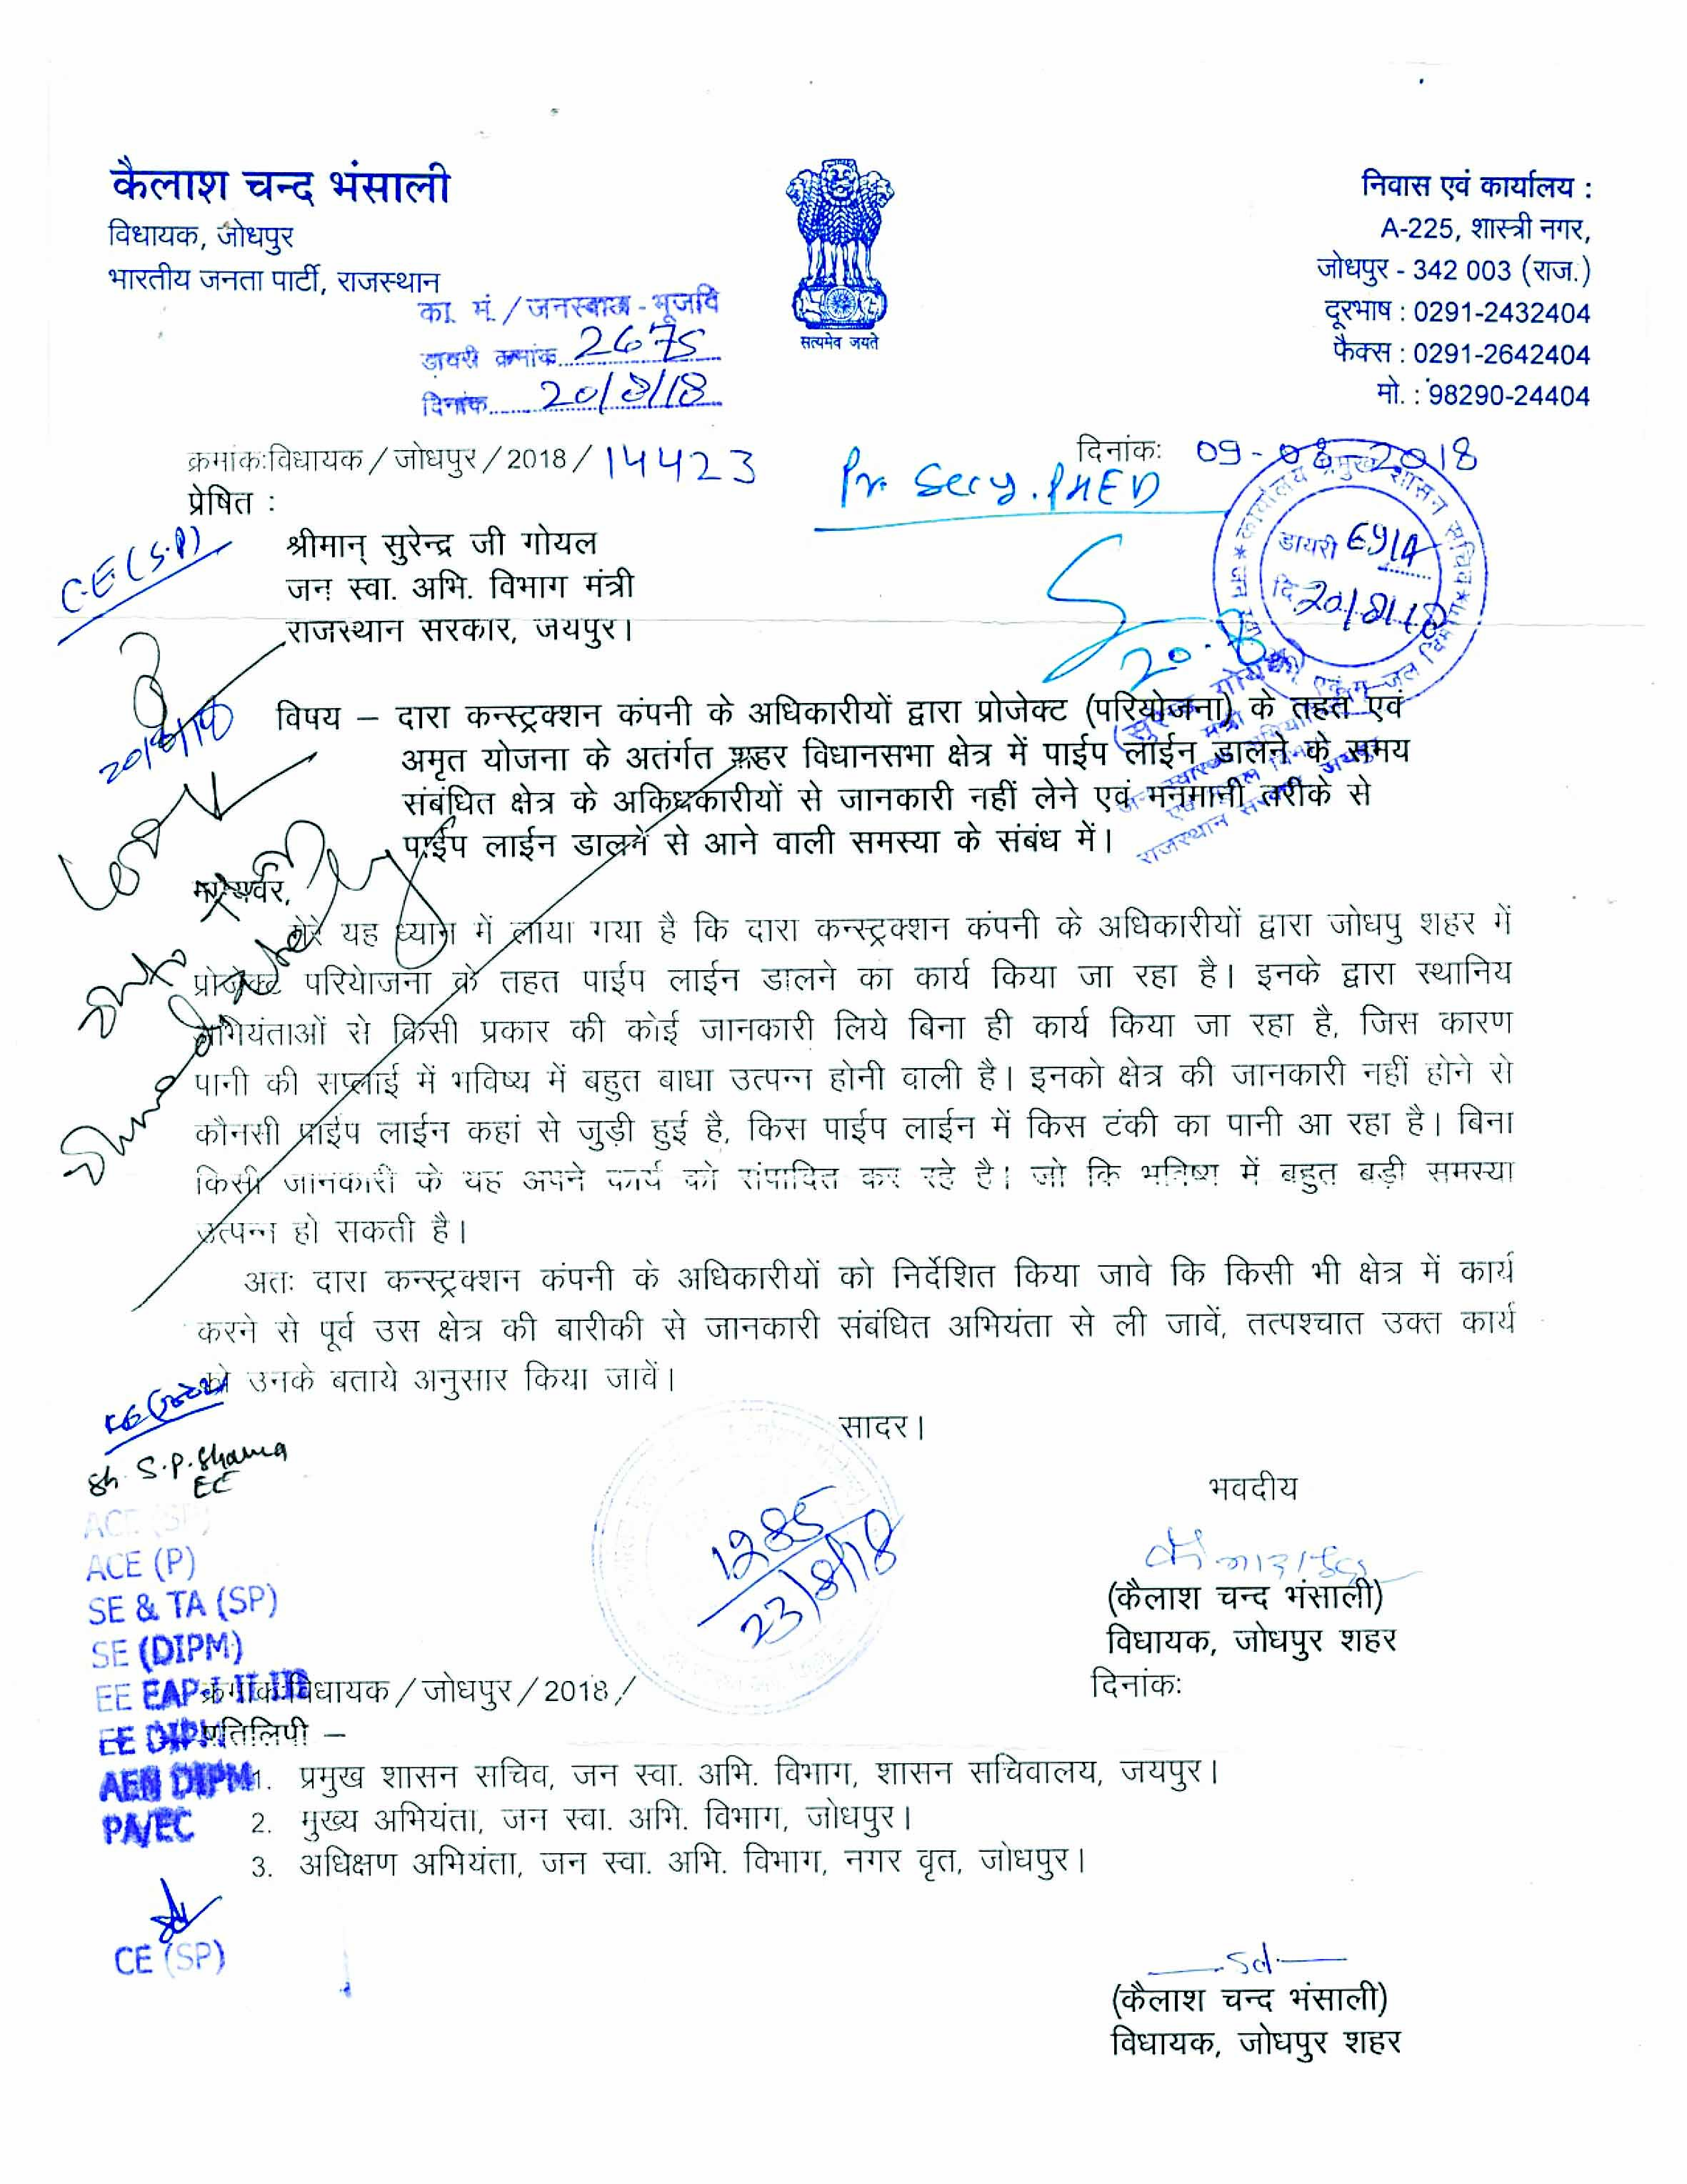 कैलाश चन्द भंसाली
विधायक, जोधपुर
भारतीय जनता पार्टी, राजस्थान
सत्यमेव जयते
निवास एवं कार्यालय :
A-225, शास्त्री नगर,
जोधपुर - 342 003 (राज.)
दूरभाष : 0291-2432404
फैक्स : 0291-2642404
मो. : 98290-24404
का. मं. / जनस्वाअ - भूजवि
डायरी क्रमांक 2675
दिनांक 20/8/18
क्रमांकःविधायक / जोधपुर / 2018 / 14423
दिनांकः 09-08-2018
Pr. Secy. PHED
प्रेषित :
C.E (S.P)
श्रीमान् सुरेन्द्र जी गोयल
जन स्वा. अभि. विभाग मंत्री
राजस्थान सरकार, जयपुर।
डायरी 6914
दि 20/8/18
20/8/18
विषय – दारा कन्स्ट्रक्शन कंपनी के अधिकारीयों द्वारा प्रोजेक्ट (परियोजना) के तहत एवं
अमृत योजना के अतंर्गत शहर विधानसभा क्षेत्र में पाईप लाईन डालने के समय
संबंधित क्षेत्र के अकिधकारीयों से जानकारी नहीं लेने एवं मनमानी तरीके से
पाईप लाईन डालने से आने वाली समस्या के संबंध में।
राजस्थान सरकार, जयपुर
मान्यवर,
मेरे यह ध्यान में लाया गया है कि दारा कन्स्ट्रक्शन कंपनी के अधिकारीयों द्वारा जोधपु शहर में
प्रोजेक्ट परियोजना के तहत पाईप लाईन डालने का कार्य किया जा रहा है। इनके द्वारा स्थानिय
अभियंताओं से किसी प्रकार की कोई जानकारी लिये बिना ही कार्य किया जा रहा है, जिस कारण
पानी की सप्लाई में भविष्य में बहुत बाधा उत्पन्न होनी वाली है। इनको क्षेत्र की जानकारी नहीं होने से
कौनसी पाईप लाईन कहां से जुड़ी हुई है, किस पाईप लाईन में किस टंकी का पानी आ रहा है। बिना
किसी जानकारी के यह अपने कार्य को संपादित कर रहे है। जो कि भविष्य में बहुत बड़ी समस्या
उत्पन्न हो सकती है।
अतः दारा कन्स्ट्रक्शन कंपनी के अधिकारीयों को निर्देशित किया जावे कि किसी भी क्षेत्र में कार्य
करने से पूर्व उस क्षेत्र की बारीकी से जानकारी संबंधित अभियंता से ली जावें, तत्पश्चात उक्त कार्य
को उनके बताये अनुसार किया जावें।
सादर।
Sh. S.P. Sharma
EC
भवदीय
1285
23/8/18
(कैलाश चन्द भंसाली)
विधायक, जोधपुर शहर
ACE (SP)
ACE (P)
SE & TA (SP)
SE (DIPM)
EE EAP-I II III
EE DIPM
AEN DIPM
PA/EC
क्रमांकःविधायक / जोधपुर / 2018 /
दिनांकः
प्रतिलिपी –
1. प्रमुख शासन सचिव, जन स्वा. अभि. विभाग, शासन सचिवालय, जयपुर।
2. मुख्य अभियंता, जन स्वा. अभि. विभाग, जोधपुर।
3. अधिक्षण अभियंता, जन स्वा. अभि. विभाग, नगर वृत, जोधपुर।
CE (SP)
—Sd—
(कैलाश चन्द भंसाली)
विधायक, जोधपुर शहर